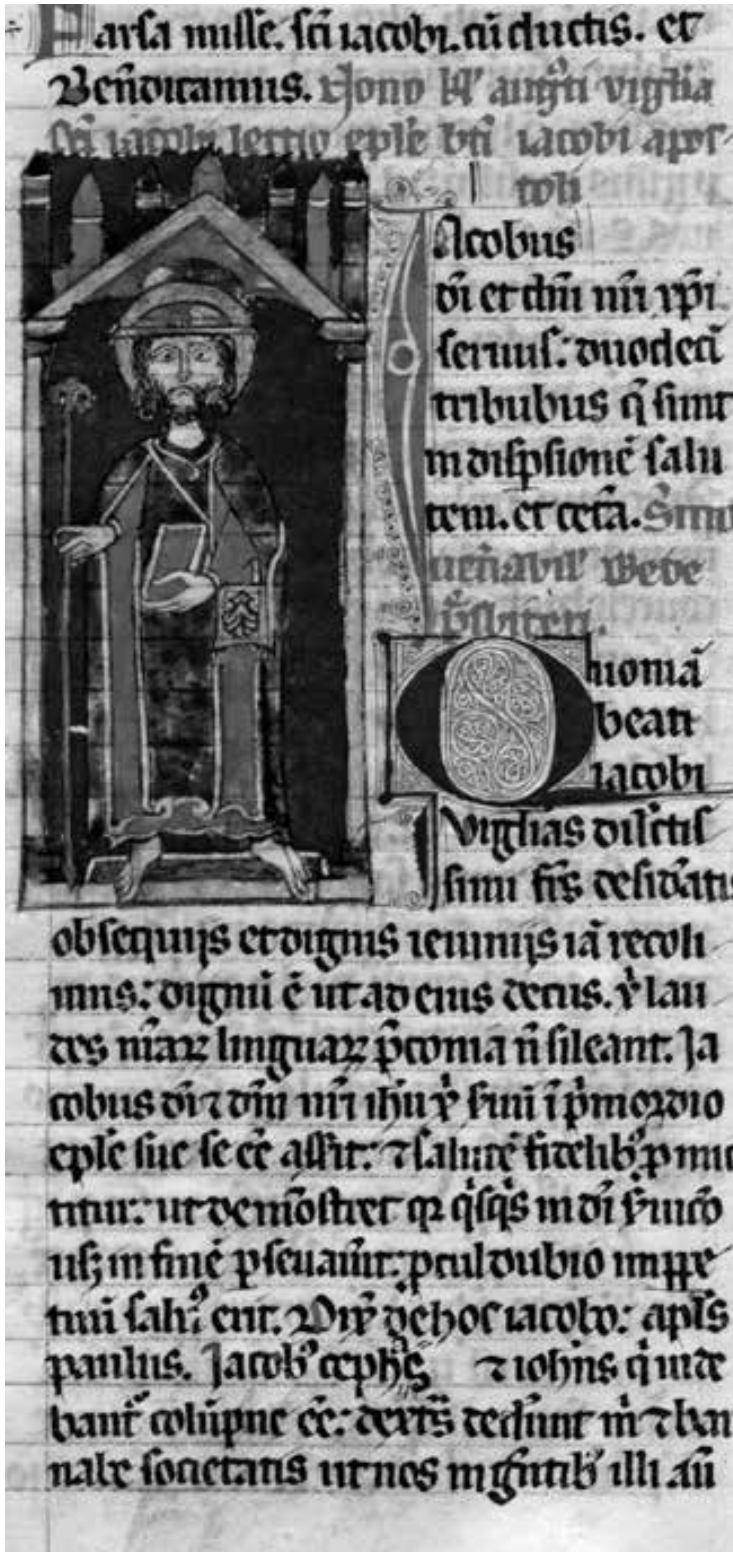 Farsa misse. sci iacobi. cu ductis. et
Benedicamus. Nono kl' augti vigilia
sci iacobi lectio eple bti iacobi apos-
toli
Iacobus
di et dni nri xpi
seruus: duodeci
tribubus q sunt
in dispsione salu
tem. et ceta. Smo
uenabil' Bede
psbiteri.
Quonia
beati
iacobi
vigilias dilectis
simi frs desidatis
obsequiis et dignis ieiuniis ia recoli
mus: dignu e ut ad eius decus. laudes
nrarz linguarz pconia n sileant. Ja
cobus di ⁊ dni nri ihu x suu i pmordio
eple sue se ee assit: ⁊ salute fidelib' pmit
titur: ut demostret qz qisqis in di
in fine pseuauit: pculdubio
erit. de hoc iacobo: apls
paulus. Jacob' cephas ⁊ iohns q uide
bant colupne ee: dextas dedunt m ⁊ bar
nabe societatis ut nos in gntib' illi au